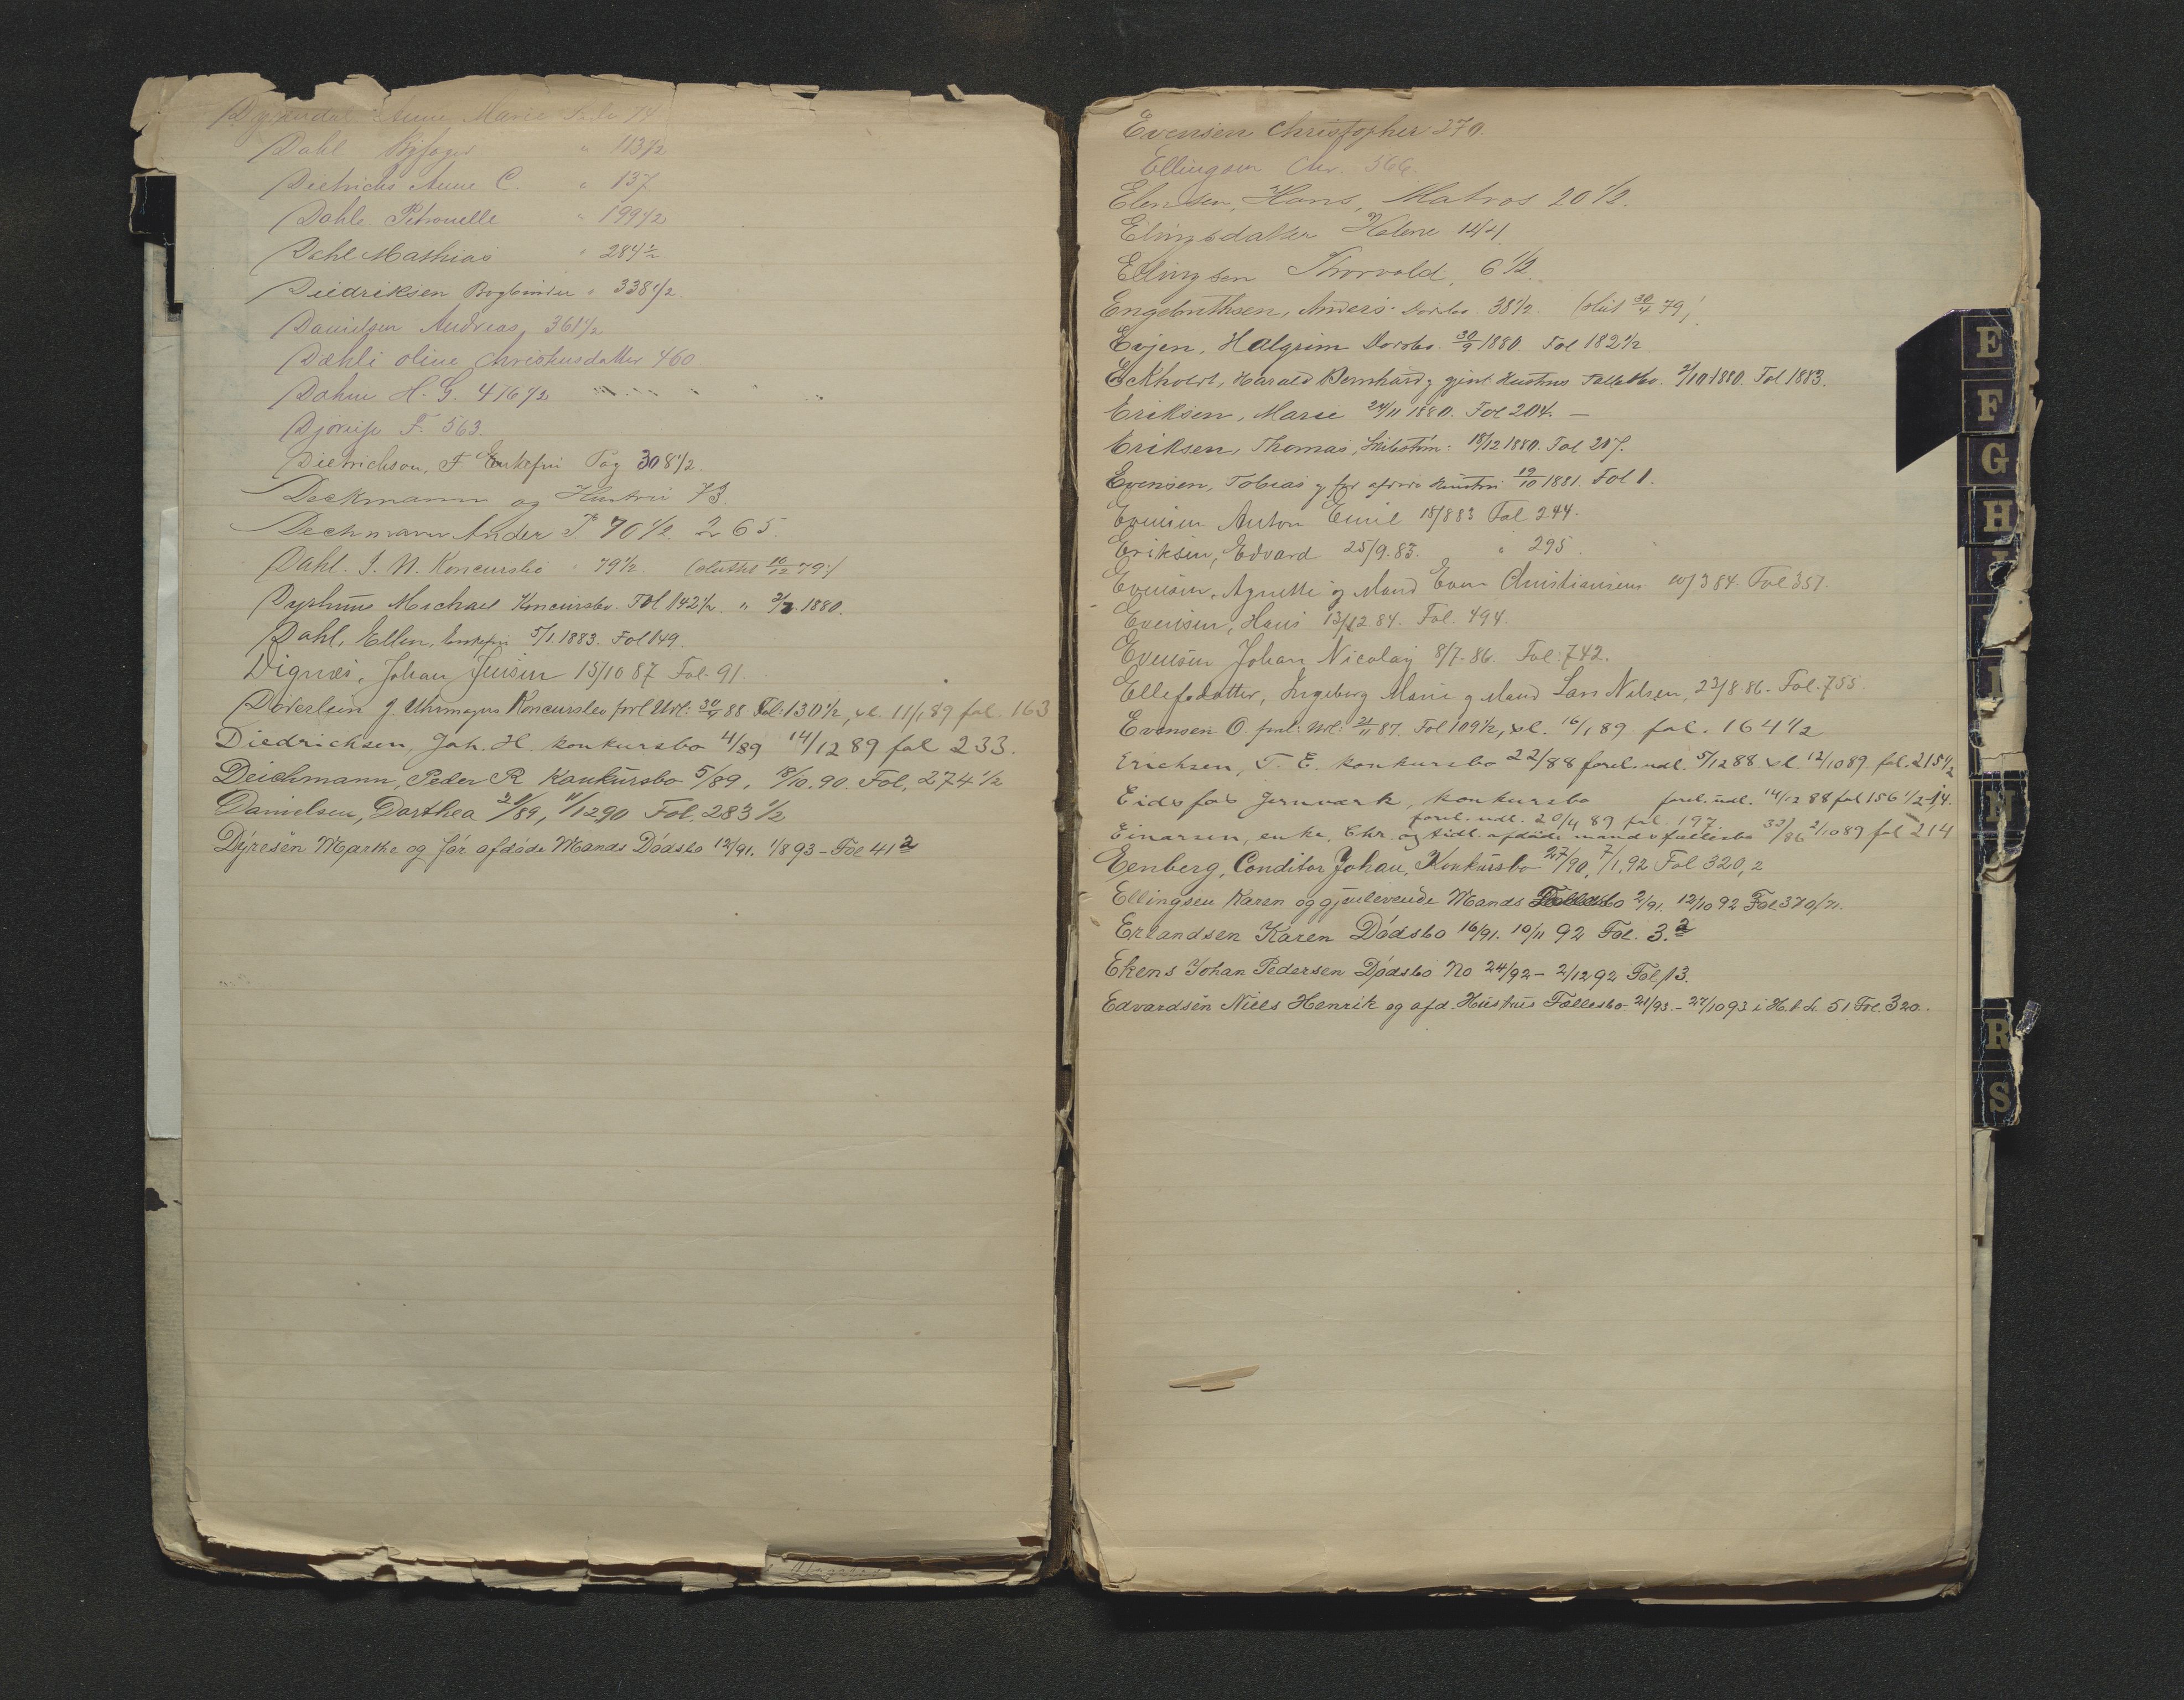 Anne Marie Side 74
Dahl Byfoged " 113 1/2
Dietrichs Anne C. " 137
Dahle Petronelle " 199 1/2
Dahl Mathias " 284 1/2
Diedriksen Bogbinder " 338 1/2.
Danielsen Andreas, 361 1/2
Dæhli Oline Christensdatter 460
Dahm H. G. 416 1/2
F. 563.
Dietrichson, F Enkefru Pag 308 1/2.
Deckmann og Hustru 73.
Dechmann Ander P. 70 1/2. 265.
Dahl. J. N. Koncursbo " 79 1/2. (sluttet 10/12 79)
Michael Koncursbo. Fol 142 1/2. " 2/2. 1880.
Dahl, Ellen, Enkefru 5/1. 1883. Fol 149.
Dignæs, Johan Jensen 15/10 87 Fol. 91.
Døderlein J. Uhrmagers Koncursbo forl Udl: 30/4 88 Fol: 130 1/2, sl. 11/1 89 fol. 163
Diedrichsen, Joh. H. konkursbo 4/89 14/12 89 fol 233.
Deichmann, Peder R Konkursbo 5/89, 18/10. 90. Fol. 274 1/2
Danielsen, Darthea /89, 11/12 90 Fol. 283 1/2
Dyresen Marthe og før afdøde Mands Dødsbo 12/91. 1/8 93 - Fol 41 2
Evensen Christopher 270.
Ellingsen Chr. 566.
Hans, Matros 20 1/2.
Elingsdatter Helene 144.
Ellingsen Thorvald, 6 1/2.
Engebrethsen, Anders. Dødsbo. 38 1/2. (slut 30/4 79)
Evjen, Halgrim Dødsbo. 30/9 1880. Fol 182 1/2
Eckholdt, Harald Bernhard og gjenl. Hustrus Fællesbo. 2/10 1880. Fol 1883.
Eriksen, Marie 24/11 1880. Fol 204. —
Eriksen, Thomas, Skibstøm: 18/12 1880. Fol 207.
Evensen, Tobias og før afdøde Hustru 19/10 1881. Fol 1.
Evensen Anton Emil 18/8 83 Fol 244.
Eriksen, Edvard 25/9. 83. " 295
Evensen, Agnethe og Mand Even Christiansens 10/3 84. Fol 351.
Evensen, Hans 13/12 84. Fol. 494.
Evensen Johan Nicolay 8/7. 86. Fol: 742.
Ellefsdatter, Ingeborg Marie og Mand Lars Nilsen, 23/8. 86. Fol. 755.
Evensen O. forel: Udl: 21/11 87. Fol 109 1/2, sl. 16/1 89 fol. 164 1/2
Erichsen, T. E. konkursbo 22/88 forel. udl. 5/12 88 sl. 12/10 89. fol. 215 1/2
Eidsfos Jernværk, konkursbo forel. udl. 14/12 88 fol 156 1/2
forel. udl. 20/4 89 fol. 197.
Einarsen, enke, Chr. og tidl. afdøde mands fællesbo 32/86 2/10 89 fol 214
Eenberg, Conditor Johan, Konkursbo 27/90, 7/1. 92 Fol 320,2
Ellingsen Karen og gjenlevende Mands Fællesbo 2/91. 12/10 92 Fol 370/71.
Erlandsen Karen Dødsbo 16/91. 10/11 92 Fol. 3. 2
Ekens Johan Pedersen Dødsbo No 24/92 - 2/12 92 Fol. 13.
Edvardsen Niels Henrik og afd. Hustrus Fællesbo 21/93. - 27/10 93 i H. b. L. 51 Fol. 320.
E
F
G
H
R
S